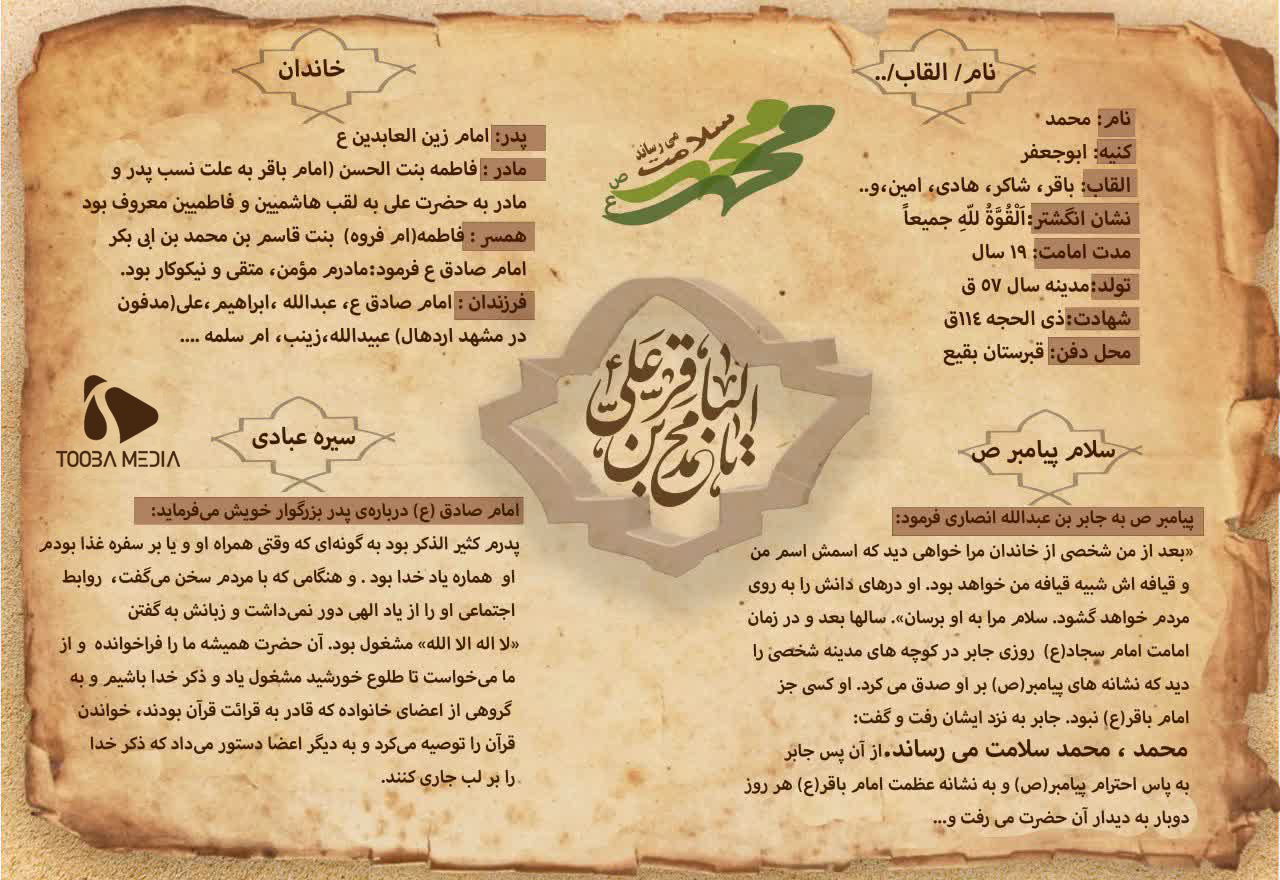 نام/ القاب/..
نام: محمد
کنیه: ابوجعفر
القاب: باقر، شاکر، هادی، امین،و..
نشان انگشتر:اَلْقُوَّةُ للّهِ جمیعاً
مدت امامت: ۱۹ سال
تولد:مدینه سال ۵۷ ق
شهادت:ذی الحجه ۱۱٤ق
محل دفن: قبرستان بقیع
محمد محمد
سلامت
می رساند
ص
ع
خاندان
پدر: امام زین العابدین ع
مادر : فاطمه بنت الحسن (امام باقر به علت نسب پدر و
مادر به حضرت علی به لقب هاشمیین و فاطمیین معروف بود
همسر : فاطمه(ام فروه)  بنت قاسم بن محمد بن ابی بکر
امام صادق ع فرمود:مادرم مؤمن، متقی و نیکوکار بود.
فرزندان : امام صادق ع، عبدالله ،ابراهیم ،علی(مدفون
در مشهد اردهال) عبیدالله،زینب، ام سلمه ....
یا محمد بن علی
الباقر
سلام پیامبر ص
پیامبر ص به جابر بن عبدالله انصاری فرمود:
«بعد از من شخصی از خاندان مرا خواهی دید که اسمش اسم من
و قیافه اش شبیه قیافه من خواهد بود. او درهای دانش را به روی
مردم خواهد گشود. سلام مرا به او برسان». سالها بعد و در زمان
امامت امام سجاد(ع)  روزی جابر در کوچه های مدینه شخصی را
دید که نشانه های پیامبر(ص) بر او صدق می کرد. او کسی جز
امام باقر(ع) نبود. جابر به نزد ایشان رفت و گفت:
محمد ، محمد سلامت می رساند.از آن پس جابر
به پاس احترام پیامبر(ص) و به نشانه عظمت امام باقر(ع) هر روز
دوبار به دیدار آن حضرت می رفت و...
سیره عبادی
TOOBA MEDIA
امام صادق (ع) درباره‌ی پدر بزرگوار خویش می‌فرماید:
پدرم کثیر الذکر بود به گونه‌ای که وقتی همراه او و یا بر سفره غذا بودم
او  هماره یاد خدا بود . و هنگامی که با مردم سخن می‌گفت،  روابط
اجتماعی او را از یاد الهی دور نمی‌داشت و زبانش به گفتن
«لا اله الا الله» مشغول بود. آن حضرت همیشه ما را فراخوانده  و از
ما می‌خواست تا طلوع خورشید مشغول یاد و ذکر خدا باشیم و به
گروهی از اعضای خانواده که قادر به قرائت قرآن بودند، خواندن
قرآن را توصیه می‌کرد و به دیگر اعضا دستور می‌داد که ذکر خدا
را بر لب جاری کنند.